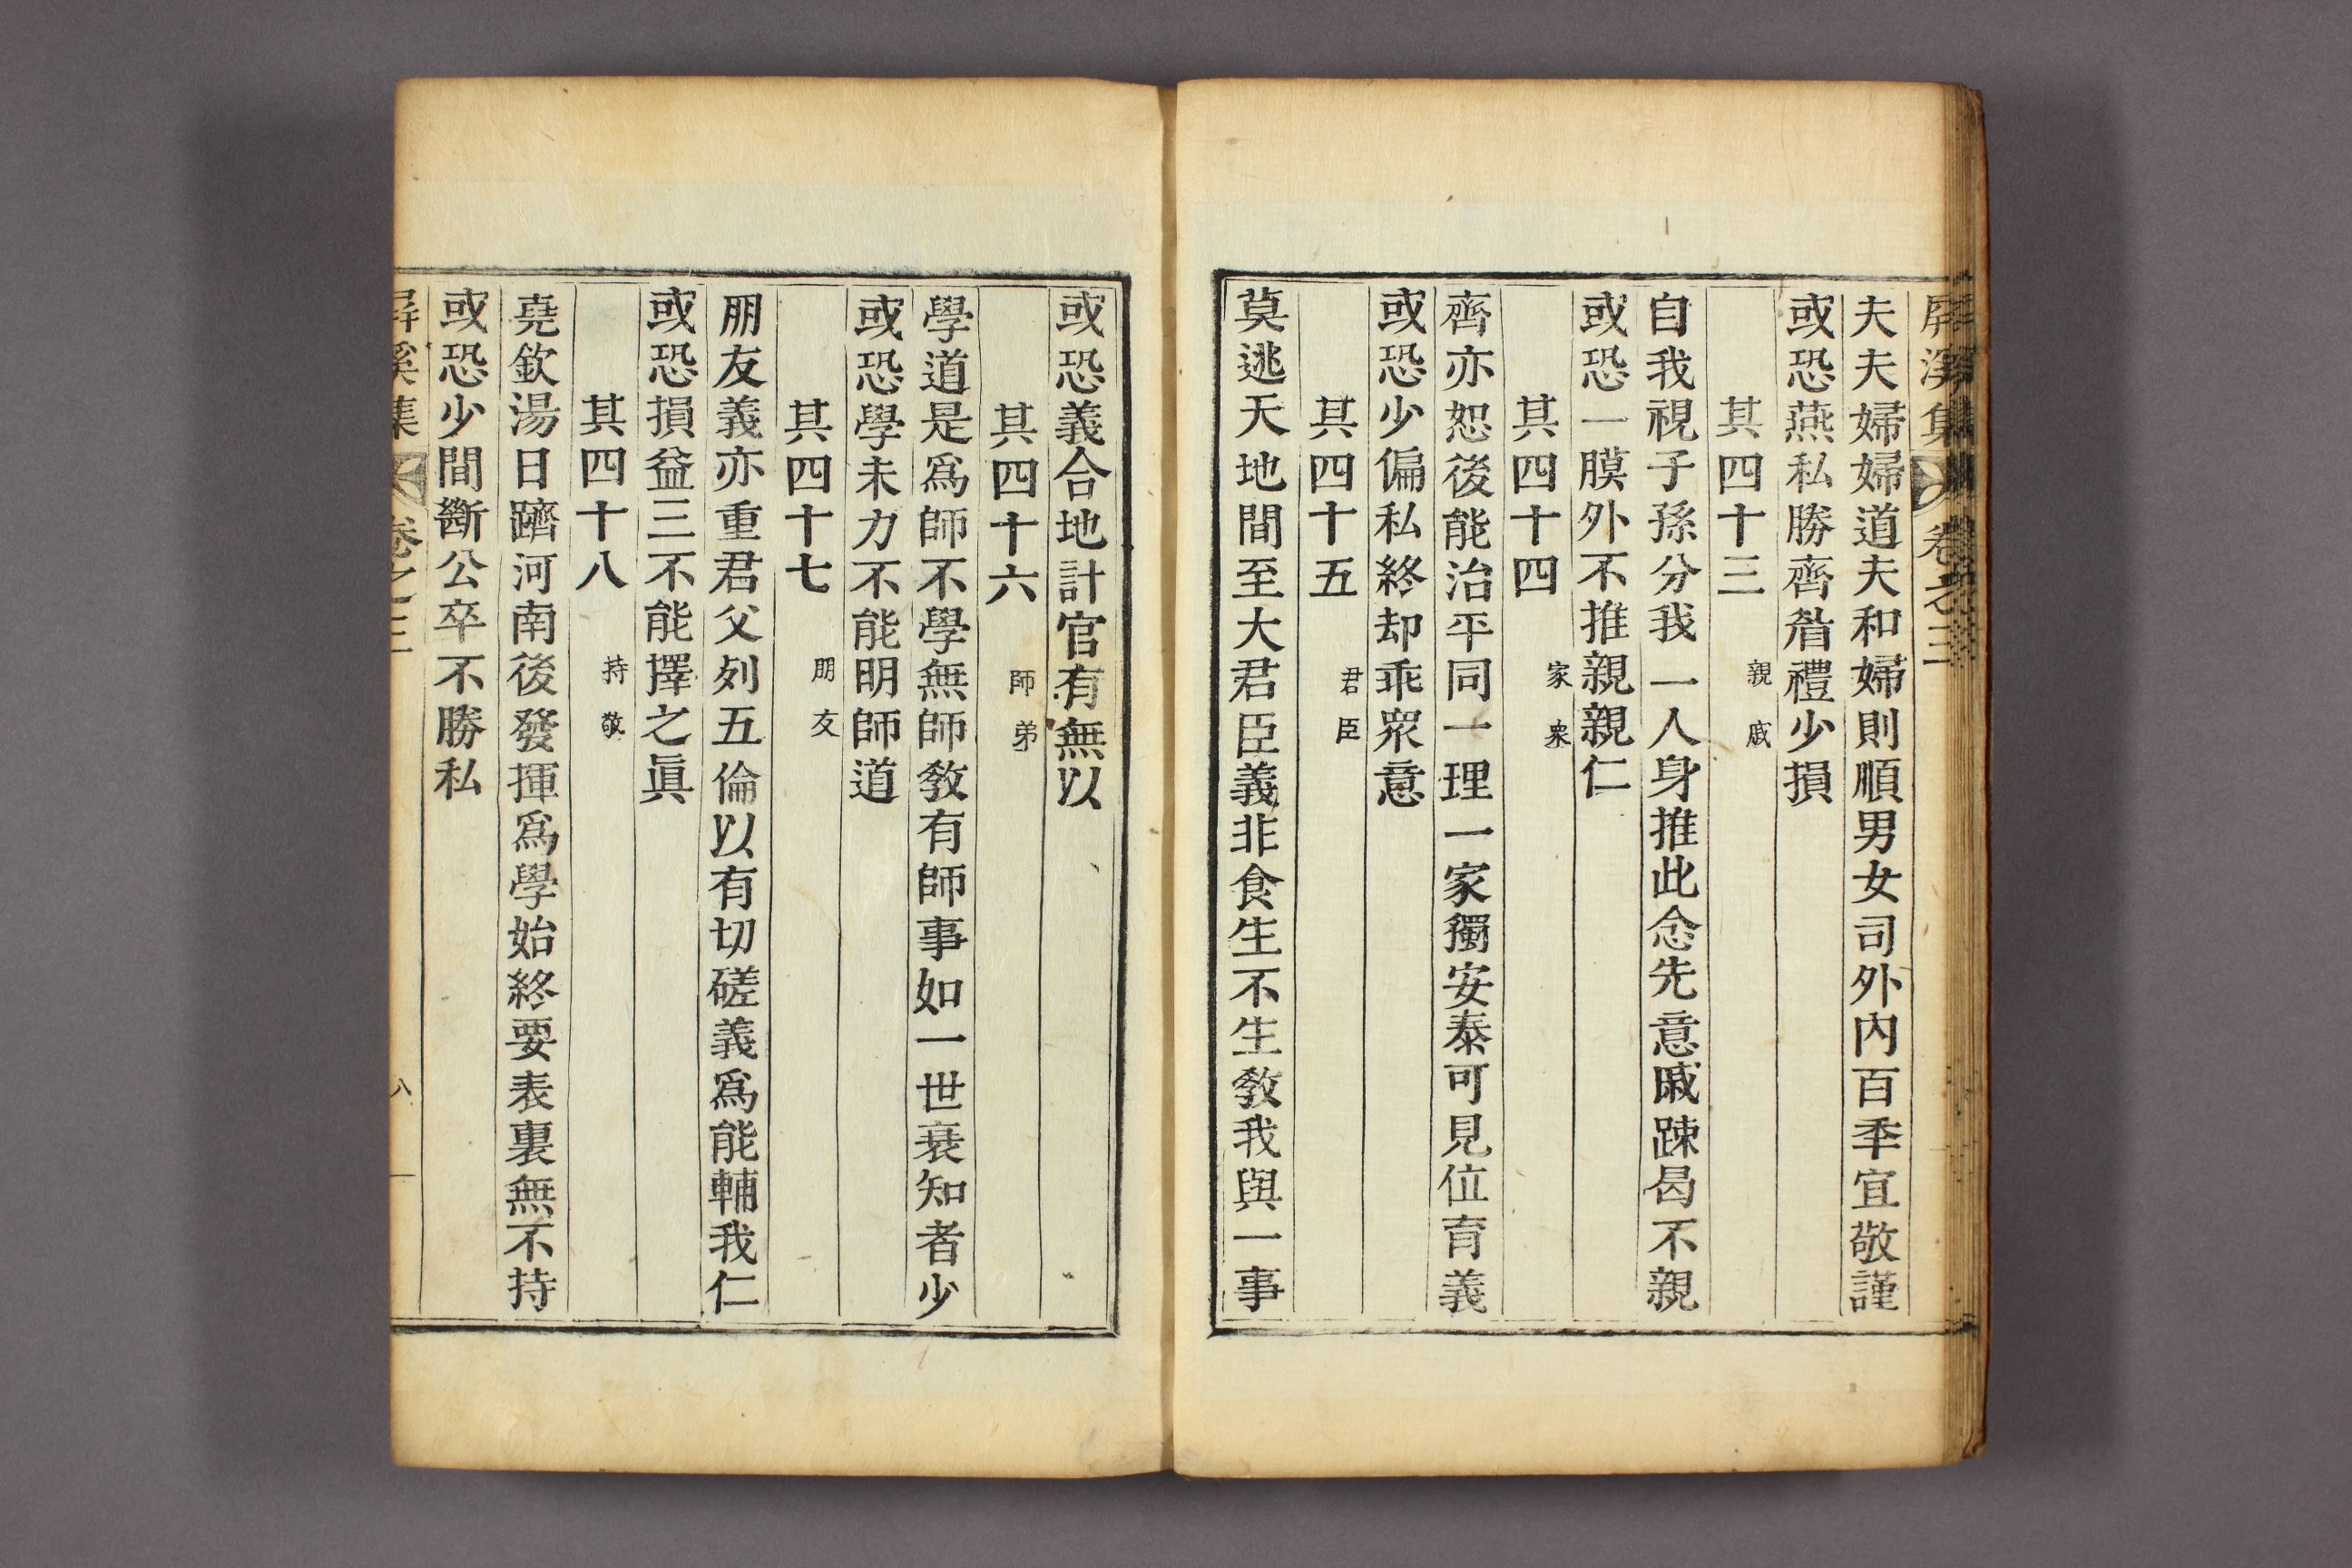 屛溪集 卷之三
夫夫婦婦道夫和婦則順男女司外內百秊宜敬謹
或恐燕私勝齊㫺禮少損
其四十三 親戚
自我視子孫分我一人身推此念先意戚踈曷不親
或恐一膜外不推親親仁
其四十四 家衆
齊亦恕後能治平同一理一家獨安泰可見位育義
或恐少偏私終却乖眾意
其四十五 君臣
莫逃天地間至大君臣義非食生不生敎我與一事
或恐義合地計官有無以
其四十六 師弟
學道是爲師不學無師敎有師事如一世衰知者少
或恐學未力不能明師道
其四十七 朋友
朋友義亦重君父列五倫以有切磋義爲能輔我仁
或恐損益三不能擇之眞
其四十八 持敬
堯欽湯日躋河南後發揮爲學始終要表裏無不持
或恐少間斷公卒不勝私
屛溪集 卷之三 八